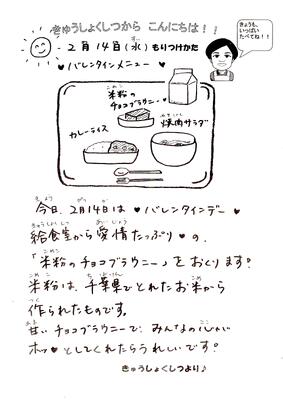 きゅうしょくしつから こんにちは！！
きょうも、
いっぱい
たべてね！！
2月14日(水) もりつけかた
♥バレンタインメニュー♥
米粉の
チョコブラウニー
カレーライス
焼肉サラダ
今日、2月14日は♥バレンタインデー♥
給食室から愛情たっぷり♥の、
「米粉のチョコブラウニー」をおくります?
米粉は、千葉県でとれたお米から
作られたものです。
甘いチョコブラウニーで、みんなの心が
ホッ♥としてくれたらうれしいです?
きゅうしょくしつより♪